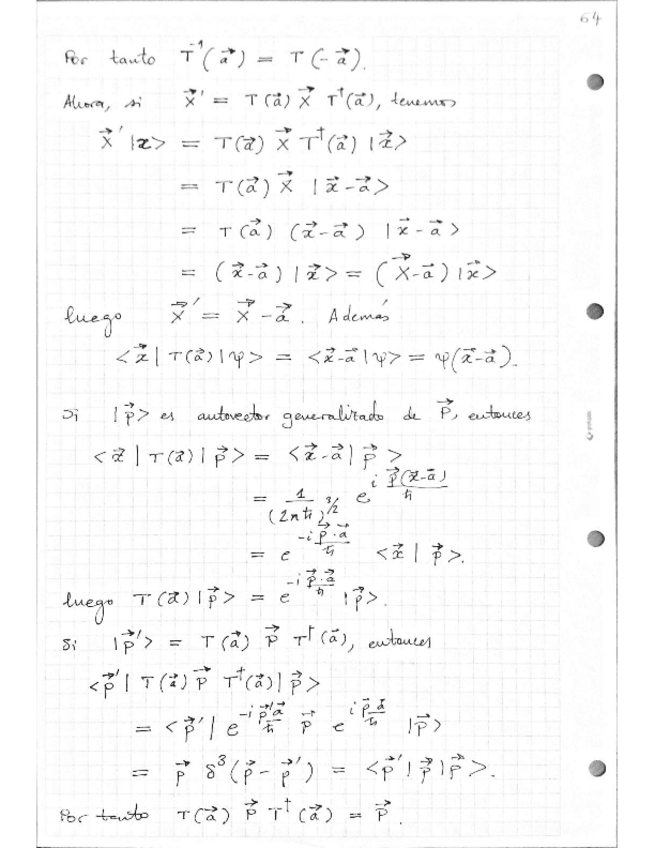 64
Por tanto T⁻¹(a⃗) = T(-a⃗).
Ahora, si X⃗' = T(a⃗) X⃗ T†(a⃗), tenemos
X⃗' |x⃗> = T(a⃗) X⃗ T†(a⃗) |x⃗>
= T(a⃗) X⃗ |x⃗-a⃗>
= T(a⃗) (x⃗-a⃗) |x⃗-a⃗>
= (x⃗-a⃗) |x⃗> = (X⃗-a⃗) |x⃗>
luego X⃗' = X⃗ - a⃗. Además
<x⃗| T(a⃗) |ψ> = <x⃗-a⃗ |ψ> = ψ(x⃗-a⃗).
Si |p⃗> es autovector generalizado de P⃗, entonces
<x⃗ | T(a⃗) | p⃗> = <x⃗-a⃗ | p⃗>
= 1/(2πħ)^{3/2} e^{i p⃗(x⃗-a⃗)/ħ}
= e^{-i p⃗·a⃗/ħ} <x⃗ | p⃗>.
luego T(a⃗) |p⃗> = e^{-i p⃗·a⃗/ħ} |p⃗>.
Si |p⃗'> = T(a⃗) P⃗ T†(a⃗), entonces
<p⃗'| T(a⃗) P⃗ T†(a⃗) | p⃗>
= <p⃗'| e^{-i p⃗'a⃗/ħ} p⃗ e^{i p⃗ a⃗/ħ} |p⃗>
= p⃗ δ³(p⃗ - p⃗') = <p⃗'| p⃗ |p⃗>.
Por tanto T(a⃗) P⃗ T†(a⃗) = P⃗.